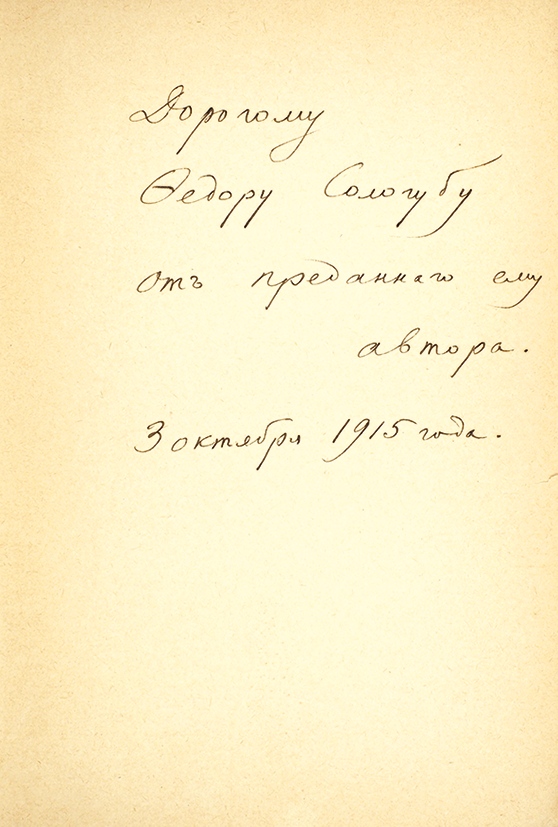 Дорогому
Ѳедору Сологубу
отъ преданнаго ему
автора.
3 октября 1915 года.